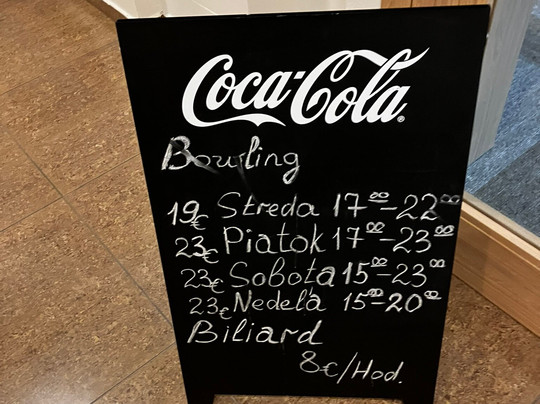 Coca-Cola®
Bowling
19€ Streda 17⁰⁰-22⁰⁰
23€ Piatok 17⁰⁰-23⁰⁰
23€ Sobota 15⁰⁰-23⁰⁰
23€ Nedeľa 15⁰⁰-20⁰⁰
Biliard
8€/Hod.